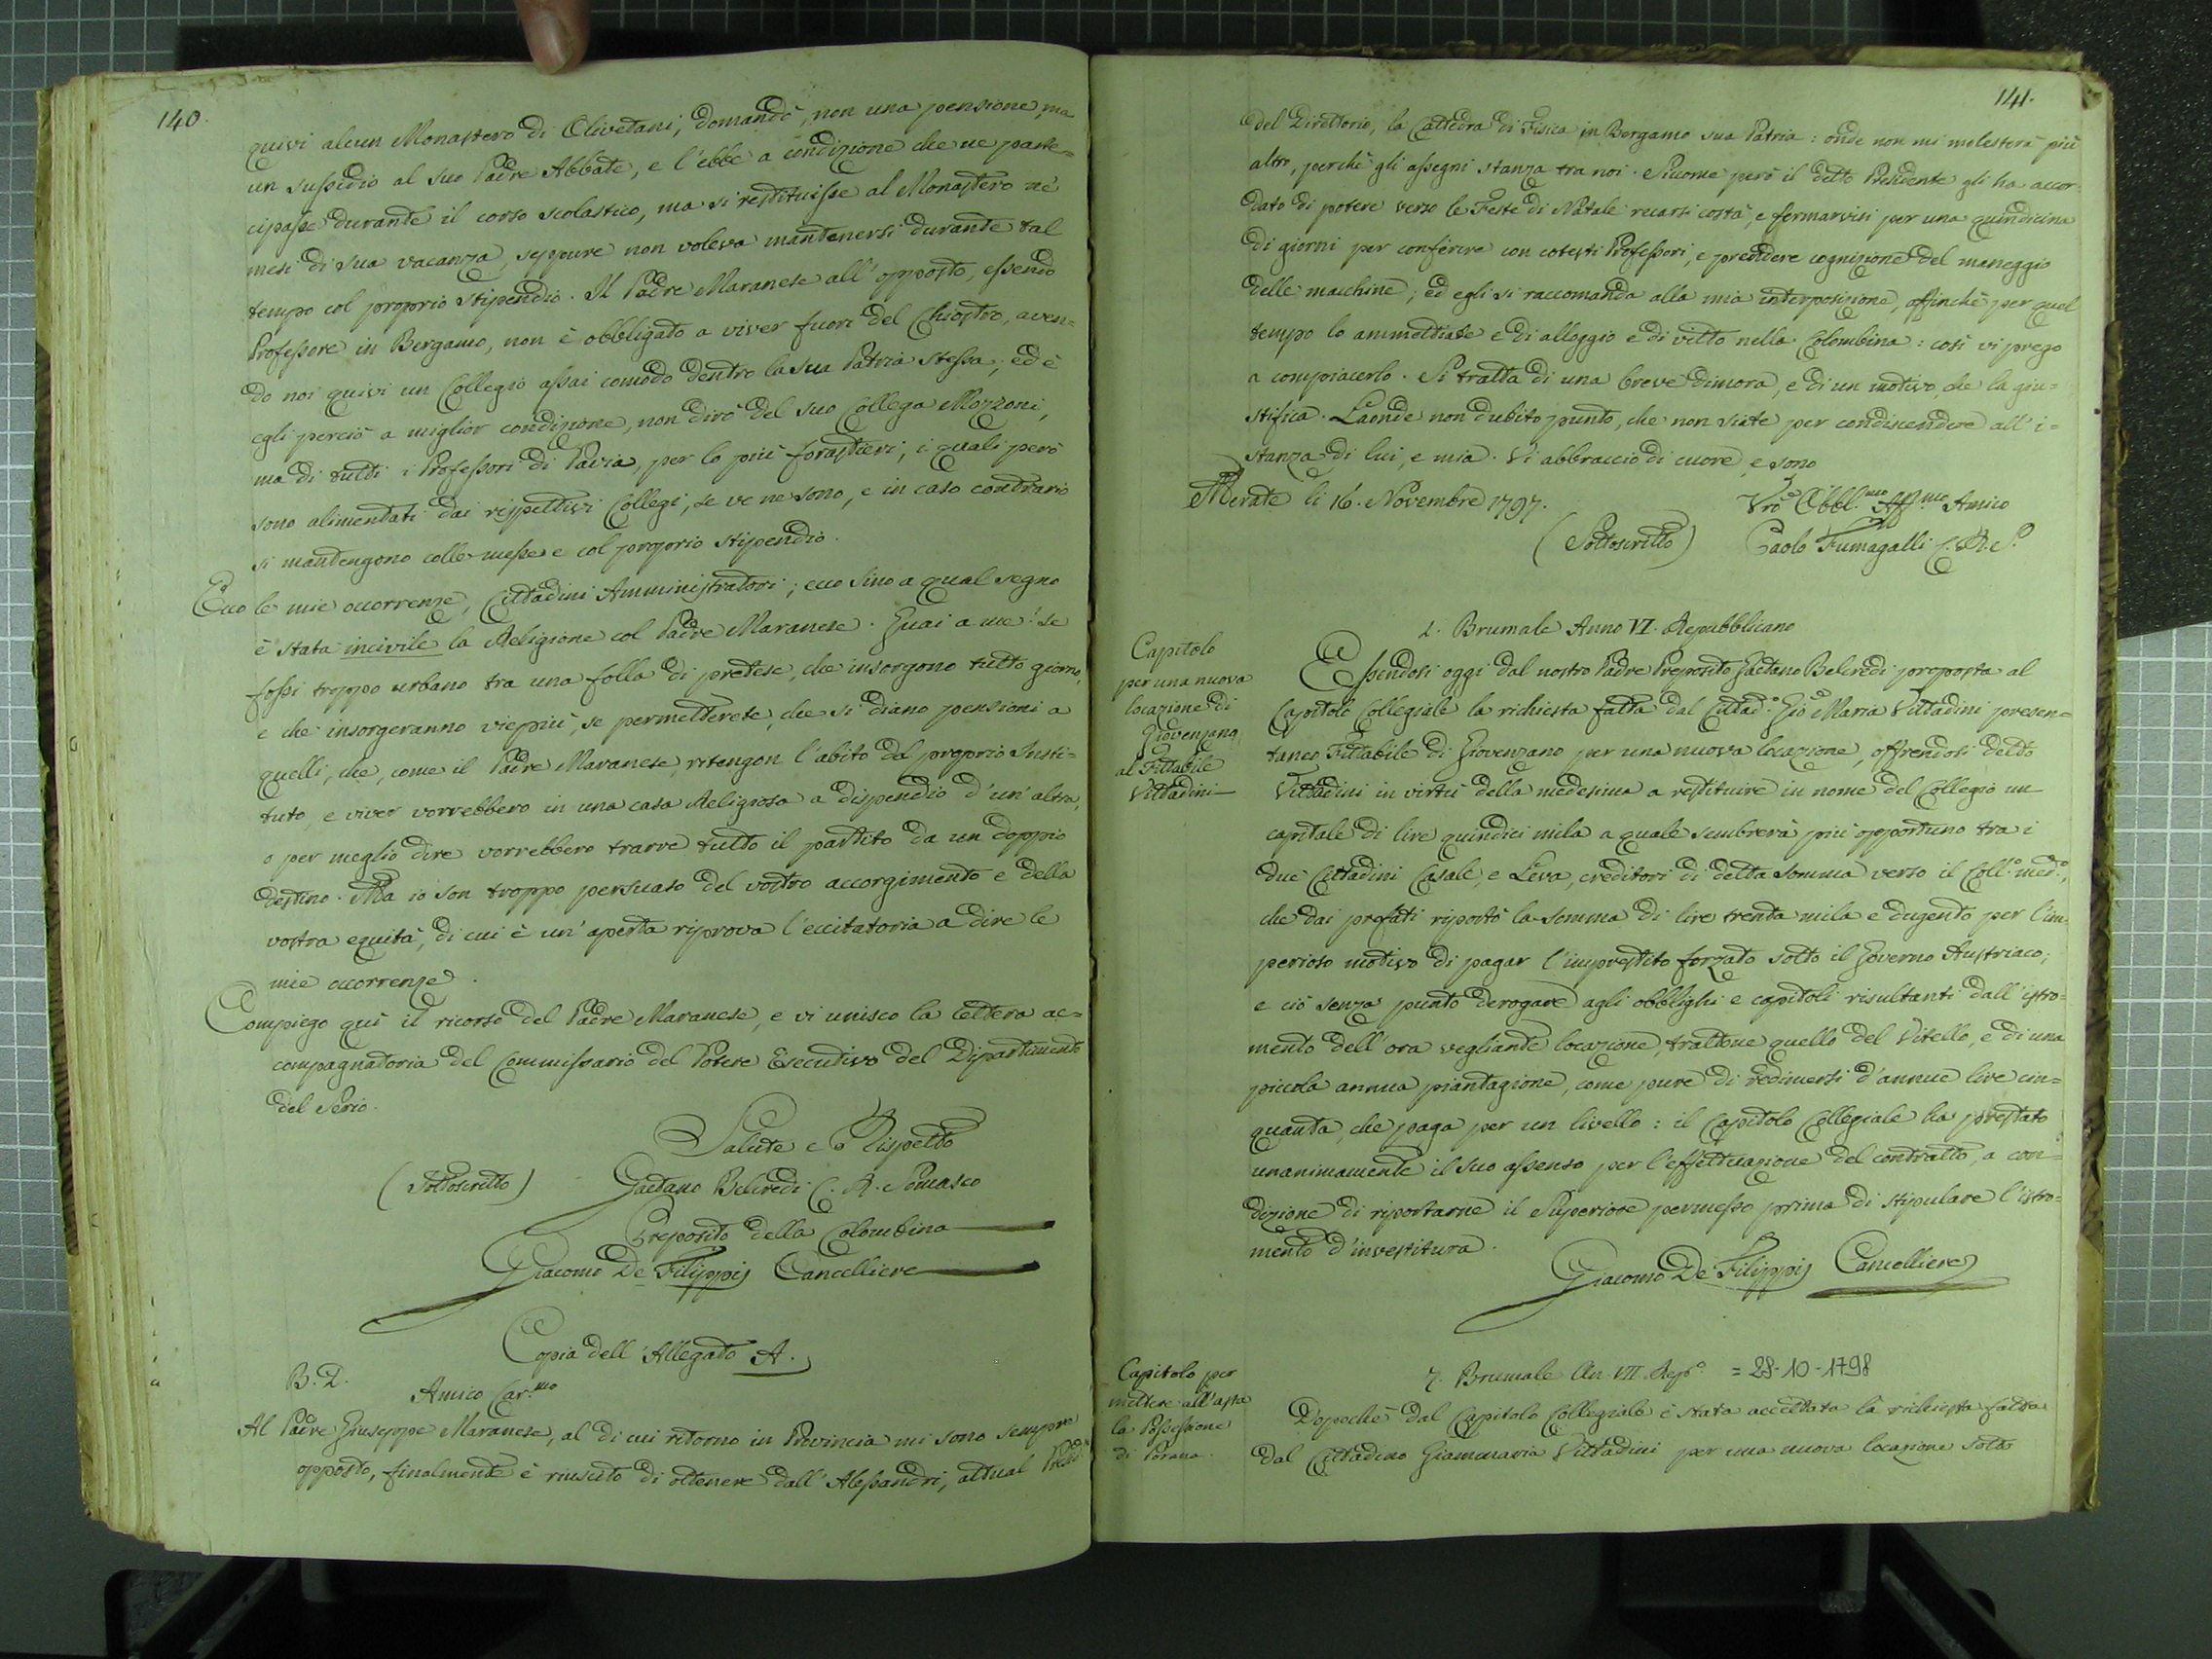 140.
quivi alcun Monastero di Olivetani, domandò, non una pensione, ma
un sussidio al suo Padre Abbate, e l'ebbe a condizione che ne parte=
cipasse durante il corso scolastico, ma si restituisse al Monastero ne'
mesi di sua vacanza, seppure non voleva mantenersi durante tal
tempo col proprio stipendio. Il Padre Maranese all'opposto, essendo
Professore in Bergamo, non è obbligato a viver fuori del Chiostro, aven=
do noi quivi un Collegio assai comodo dentro la sua Patria stessa; ed è
egli perciò a miglior condizione, non dirò del suo Collega Mozzoni,
ma di tutti i Professori di Pavia, per lo più forastieri, i quali però
sono alimentati dai rispettivi Collegi, se ve ne sono, e in caso contrario
si mantengono colle messe e col proprio stipendio.
Ecco le mie occorrenze, Cittadini Amministratori; ecco sino a qual segno
è stata incivile la Religione col Padre Maranese. Guai a me! se
fossi troppo urbano tra una folla di pretese, che insorgono tutto giorno,
e che insorgeranno viepiù, se permetterete, che si diano pensioni a
quelli, che, come il Padre Maranese, ritengon l'abito del proprio Insti=
tuto, e viver vorrebbero in una casa Religiosa a dispendio d'un'altra,
o per meglio dire vorrebbero trarre tutto il partito da un doppio
destino. Ma io son troppo persuaso del vostro accorgimento e della
vostra equità, di cui è un'aperta riprova l'eccitatoria a dire le
mie occorrenze.
Compiego quì il ricorso del Padre Maranese, e vi unisco la lettera ac=
compagnatoria del Commissario del Potere Esecutivo del Dipartimento
del Serio.
Salute e Rispetto
(Sottoscritto) Gaetano Belcredi C. R. Somasco
Preposito della Colombina
Giacomo De Filippi Cancelliere
Copia dell'Allegato A.
B. D.
Amico Car.mo
Al Padre Giuseppe Maranese, al di cui ritorno in Provincia mi sono sempre
opposto, finalmente è riuscito di ottenere dall'Alessandri, attual
141.
del Direttorio, la Cattedra di Fisica in Bergamo sua Patria: onde non mi molesterà più
altro, perchè gli assegni stanza tra noi. Siccome però il detto Presidente gli ha accor=
dato di potere verso le Feste di Natale recarsi costà, e fermarvisi per una quindicina
di giorni per conferire con cotesti Professori, e prendere cognizione del maneggio
delle macchine; ed egli si raccomanda alla mia interposizione, affinchè per quel
tempo lo ammettiate e di alloggio e di vitto nella Colombina: così vi prego
a compiacerlo. Si tratta di una breve dimora, e di un motivo, che la giu=
stifica. Laonde non dubito punto, che non siate per condiscendere all'i=
stanza di lui, e mia. Vi abbraccio di cuore, e sono
Merate li 16. Novembre 1797.
Vro Obbl.mo Aff.mo Amico
(Sottoscritto) Paolo Fumagalli C. R. S.
2. Brumale Anno VI. Repubblicano
Capitolo
per una nuova
locazione di
Giovenzano
al Fittabile
Vittadini
Essendosi oggi dal nostro Padre Preposito Gaetano Belcredi proposta al
Capitolo Collegiale la richiesta fatta dal Cittad.o Gio Maria Vittadini presen=
taneo Fittabile di Giovenzano per una nuova locazione, offrendosi detto
Vittadini in virtù della medesima a restituire in nome del Collegio un
capitale di lire quindici mila a quale sembrerà più opportuno tra i
due Cittadini Casale, e Leva, creditori di detta somma verso il Coll.o med.o,
che dai prefati riportò la somma di lire trenta mila e dugento per l'im=
perioso motivo di pagar l'imprestito forzato sotto il Governo Austriaco;
e ciò senza punto derogare agli obblighi e capitoli risultanti dall'istro=
mento dell'ora vegliante locazione, trattone quello del Vitello, e di una
piccola annua piantagione, come pure di redimersi d'annue lire cin=
quanta, che paga per un livello: il Capitolo Collegiale ha prestato
unanimamente il suo assenso per l'effettuazione del contratto, a con=
dizione di riportarne il Superiore permesso prima di stipulare l'istro=
mento d'investitura.
Giacomo De Filippi Cancelliere
7. Brumale An. VII. Rep.o = 28-10-1798
Capitolo per
mettere all'asta
la Possessione
di Porana
Dopochè dal Capitolo Collegiale è stata accettata la richiesta fatta
dal Cittadino Giammaria Vittadini per una nuova locazione sotto